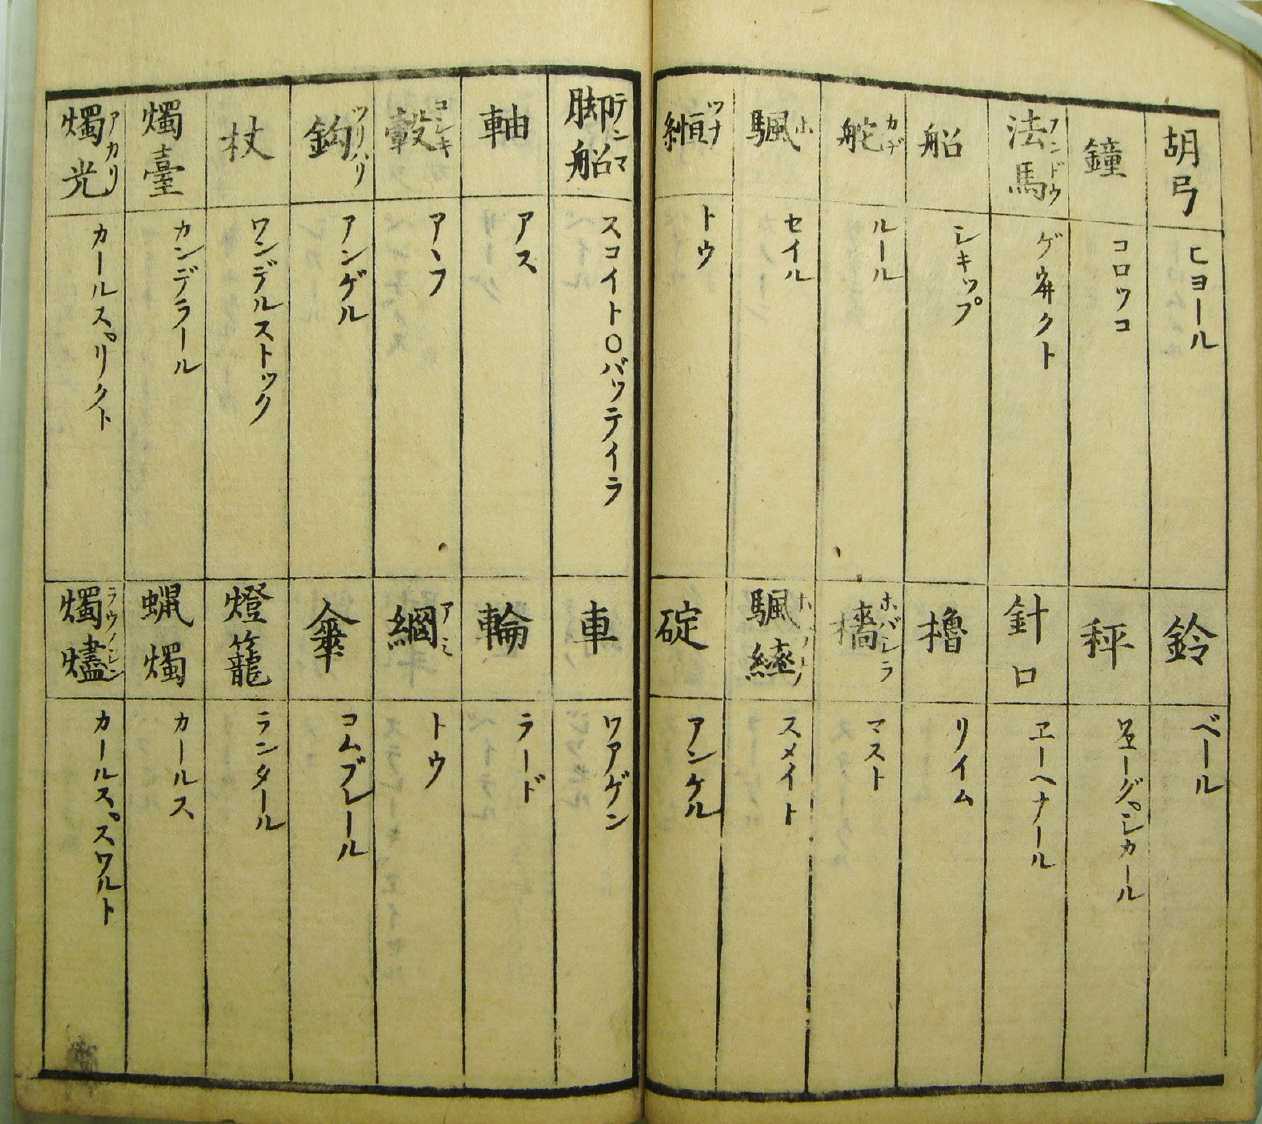 胡弓 ヒヨール
鐘 コロツコ
法馬 フンドウ ゲヰクト
船 シキップ
舵 カヂ ルール
颿 ホ セイル
縆 ツナ トウ
鈴 ベール
秤
針口 ヱーヘナール
櫓 リイム
檣 ホバシラ マスト
颿繂 スメイト
碇 アンケル
脚船 テンマ スコイト〇バッテイラ
軸 アス
轂 コシキ アヽフ
鈎 ツリバリ アンゲル
杖 ワンデルストック
燭臺 カンデラール
燭光 アカリ カールス゚リクト
車 ワアゲン
輪 ラード
網 アミ トウ
傘 コムブレール
燈籠 ランタール
蝋燭 カールス
燭燼 ラウノシン カールス゚スワルト